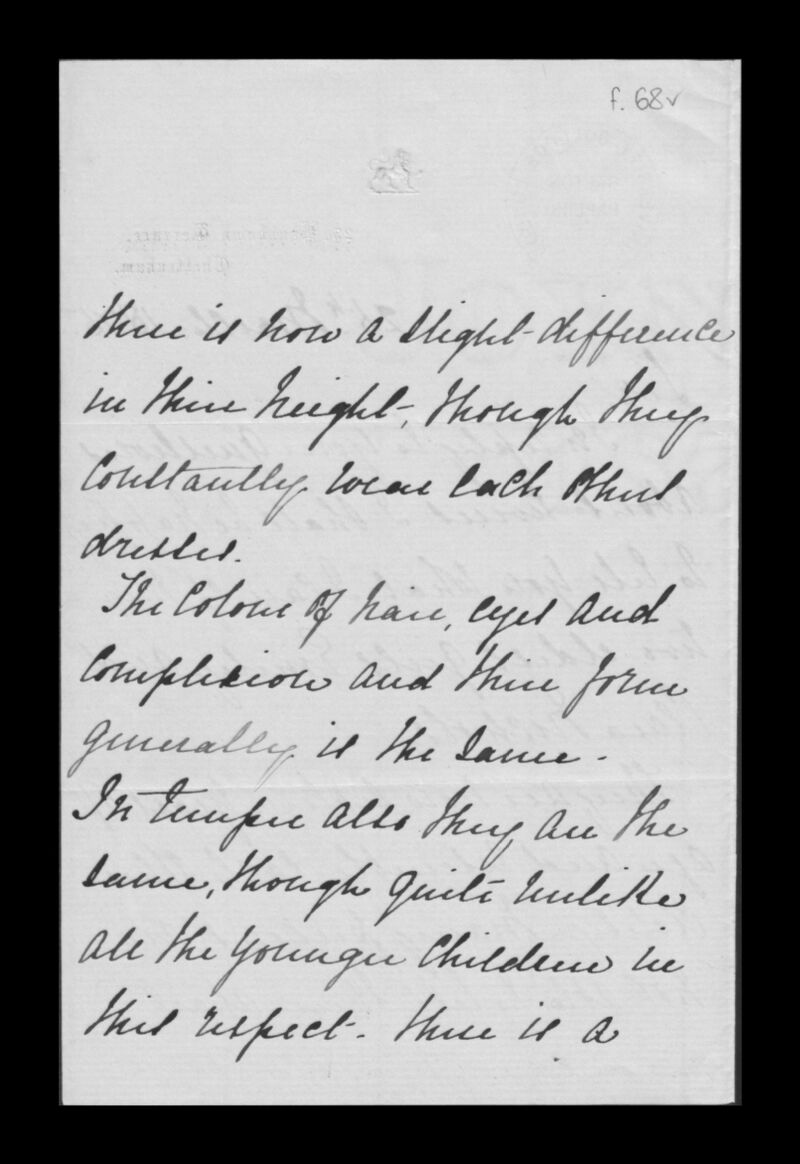 f. 68v
there is now a slight difference
in their height, though they
constantly wear each others
dresses.
The Colour of hair, eyes and
complexion and their form
generally is the same.
In temper also they are the
same, though quite unlike
all the younger children in
this respect. There is a